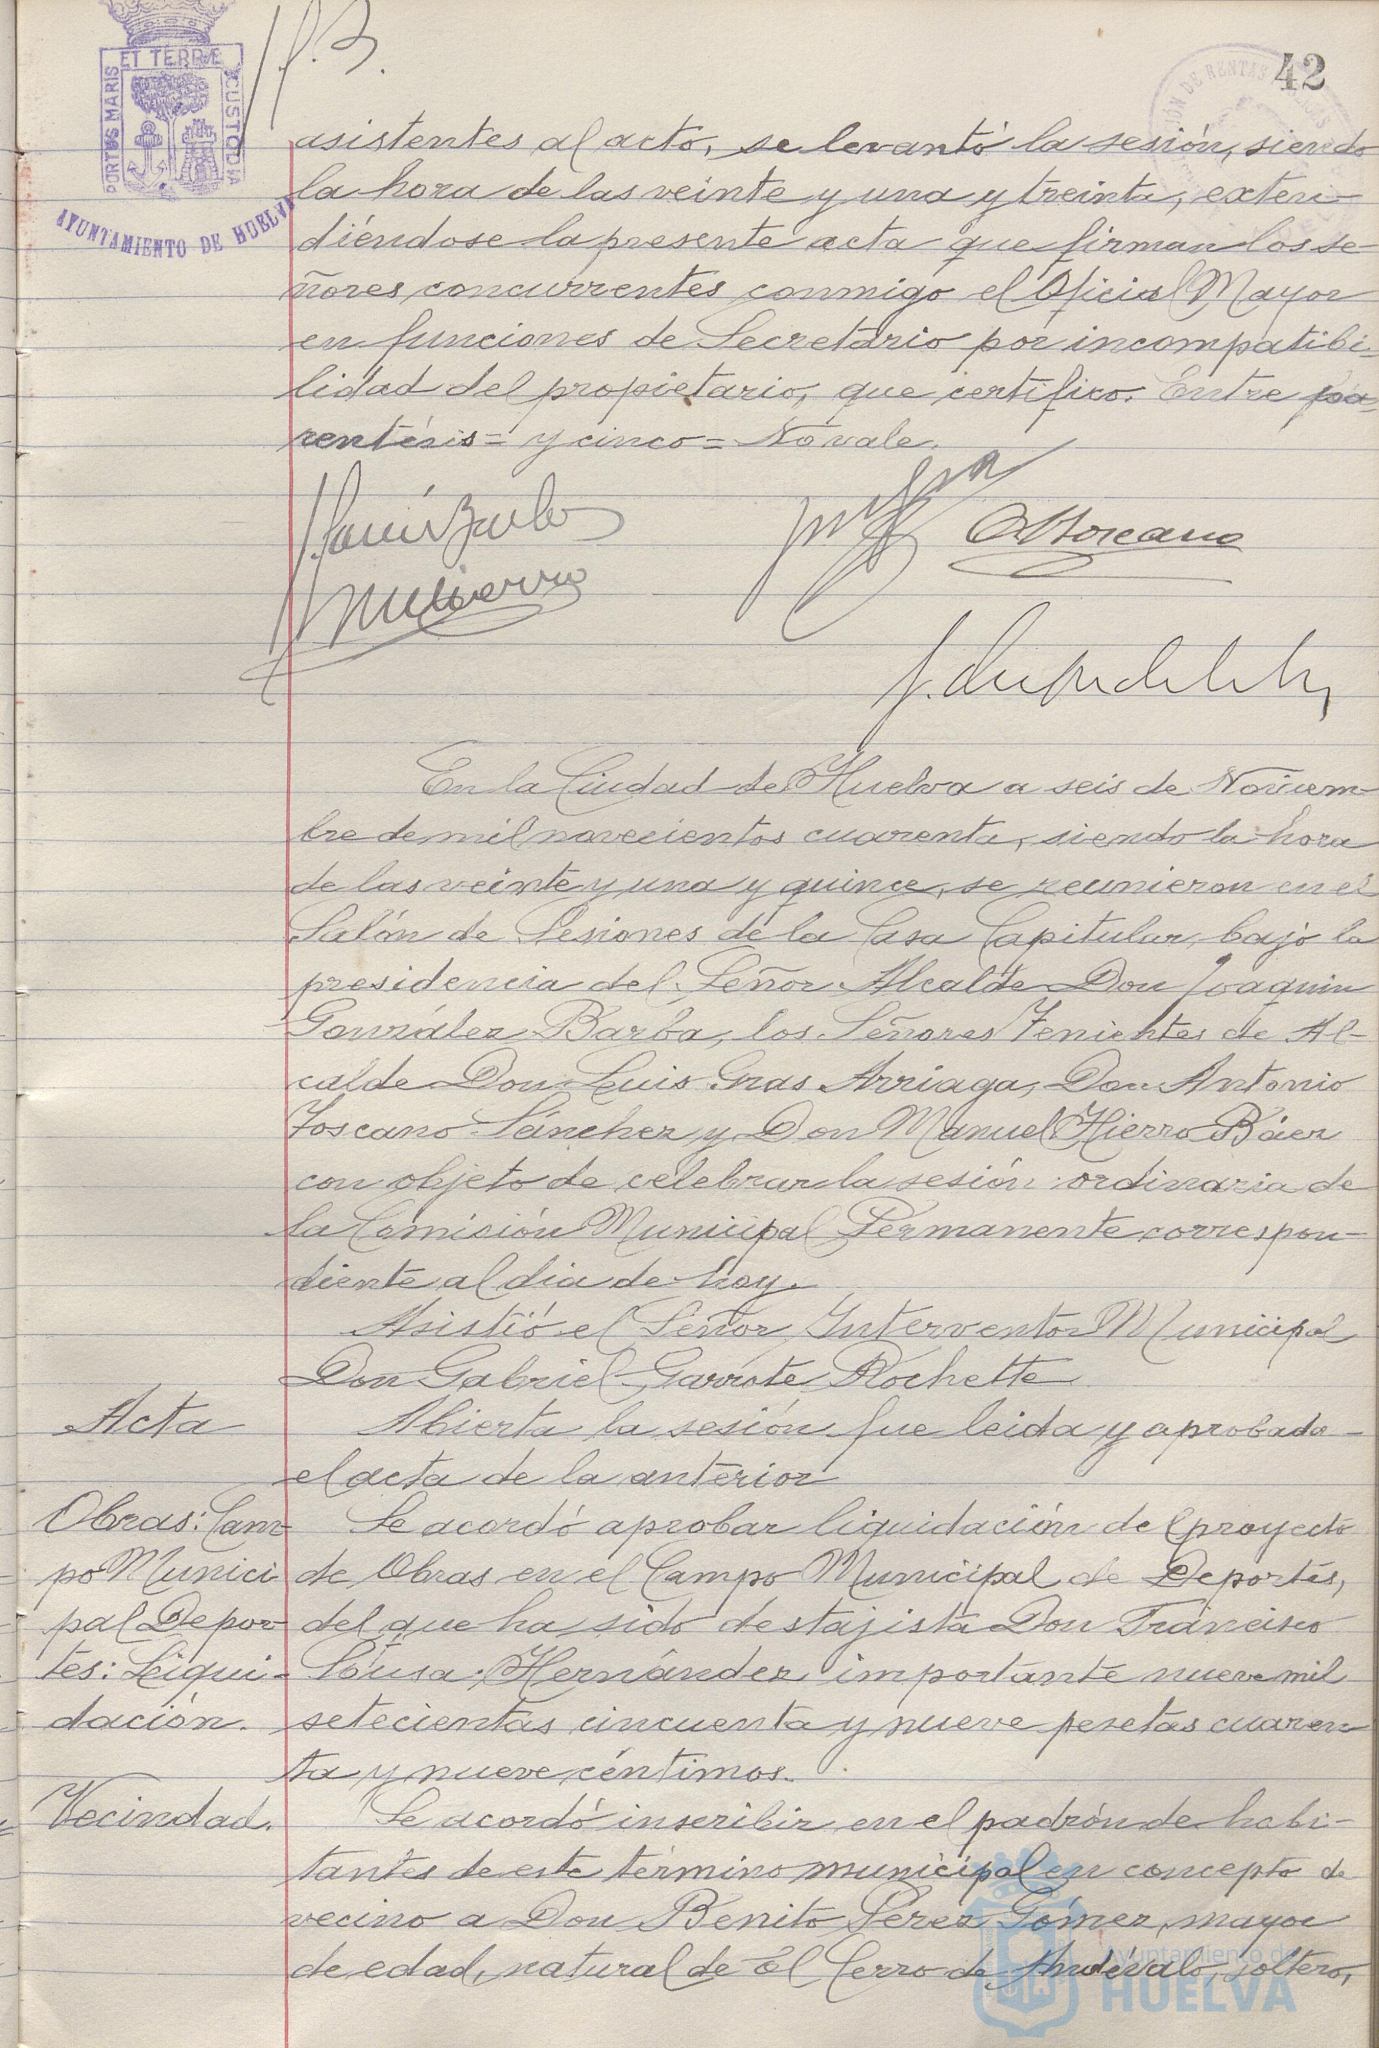 42
PORTUS MARIS ET TERRÆ CUSTODIA
AYUNTAMIENTO DE HUELVA
asistentes al acto, se levantó la sesión, siendo
la hora de las veinte y una y treinta, exten-
diéndose la presente acta que firman los se-
ñores concurrentes conmigo el Oficial Mayor
en funciones de Secretario por incompatibi-
lidad del propietario, que certifico. Entre pa-
rentésis = y cinco = No vale.
A Toscano
En la Ciudad de Huelva a seis de Noviem-
bre de mil novecientos cuarenta, siendo la hora
de las veinte y una y quince, se reunieron en el
Salón de Sesiones de la Casa Capitular, bajo la
presidencia del Señor Alcalde Don Joaquin
González Barba, los Señores Tenientes de Al-
calde Don Luis Gras Arriaga, Don Antonio
Toscano Sánchez y Don Manuel Hierro Báez
con objeto de celebrar la sesión ordinaria de
la Comisión Municipal Permanente correspon-
diente al dia de hoy.
Asistió el Señor Interventor Municipal
Don Gabriel Garrote Rochette
Acta
Abierta la sesión fue leida y aprobada
el acta de la anterior
Obras: Cam-
po Munici
pal Depor-
tes: Liqui-
dación.
Se acordó aprobar liquidación del proyecto
de Obras en el Campo Municipal de Deportes,
del que ha sido destajista Don Francisco
Sousa Hernández importante nueve mil
setecientas cincuenta y nueve pesetas cuaren-
ta y nueve céntimos.
Vecindad.
Se acordó inscribir en el padrón de habi-
tantes de este término municipal en concepto de
vecino a Don Benito Pérez Gómez, mayor
de edad, natural de El Cerro de Andévalo, soltero,
Ayuntamiento de
HUELVA